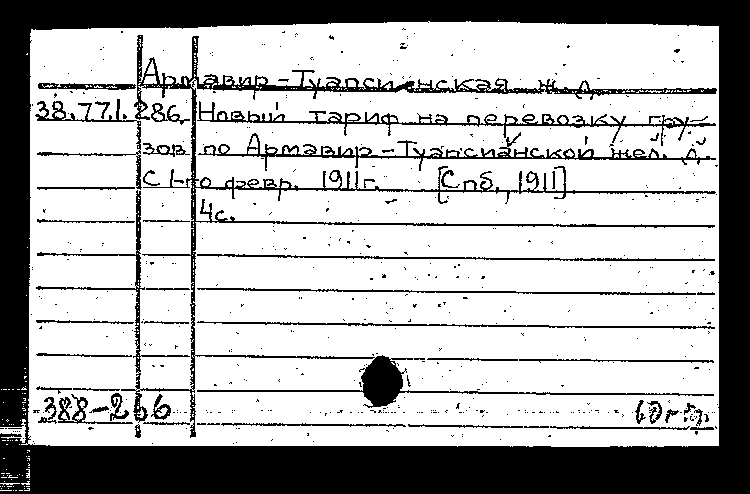 Армавир-Туапсинская ж. д.
38.77.1.286. Новый тариф на перевозку гру-
зов по Армавир-Туапсианской жел. д.
С 1-го февр. 1911г. [Спб., 1911].
4с.
388-266